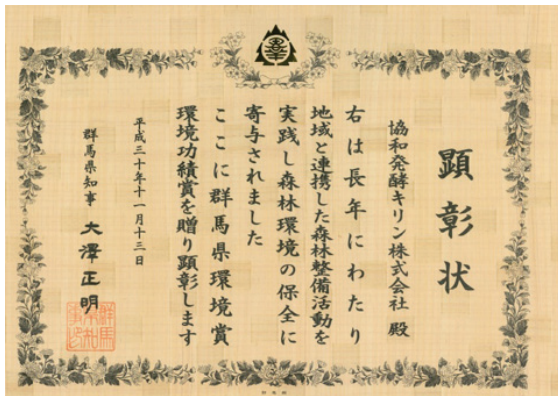 顕彰状
協和発酵キリン株式会社 殿
右は長年にわたり
地域と連携した森林整備活動を
実践し森林環境の保全に
寄与されました
ここに群馬県環境賞
環境功績賞を贈り顕彰します
平成三十年十一月十三日
群馬県知事 大澤正明